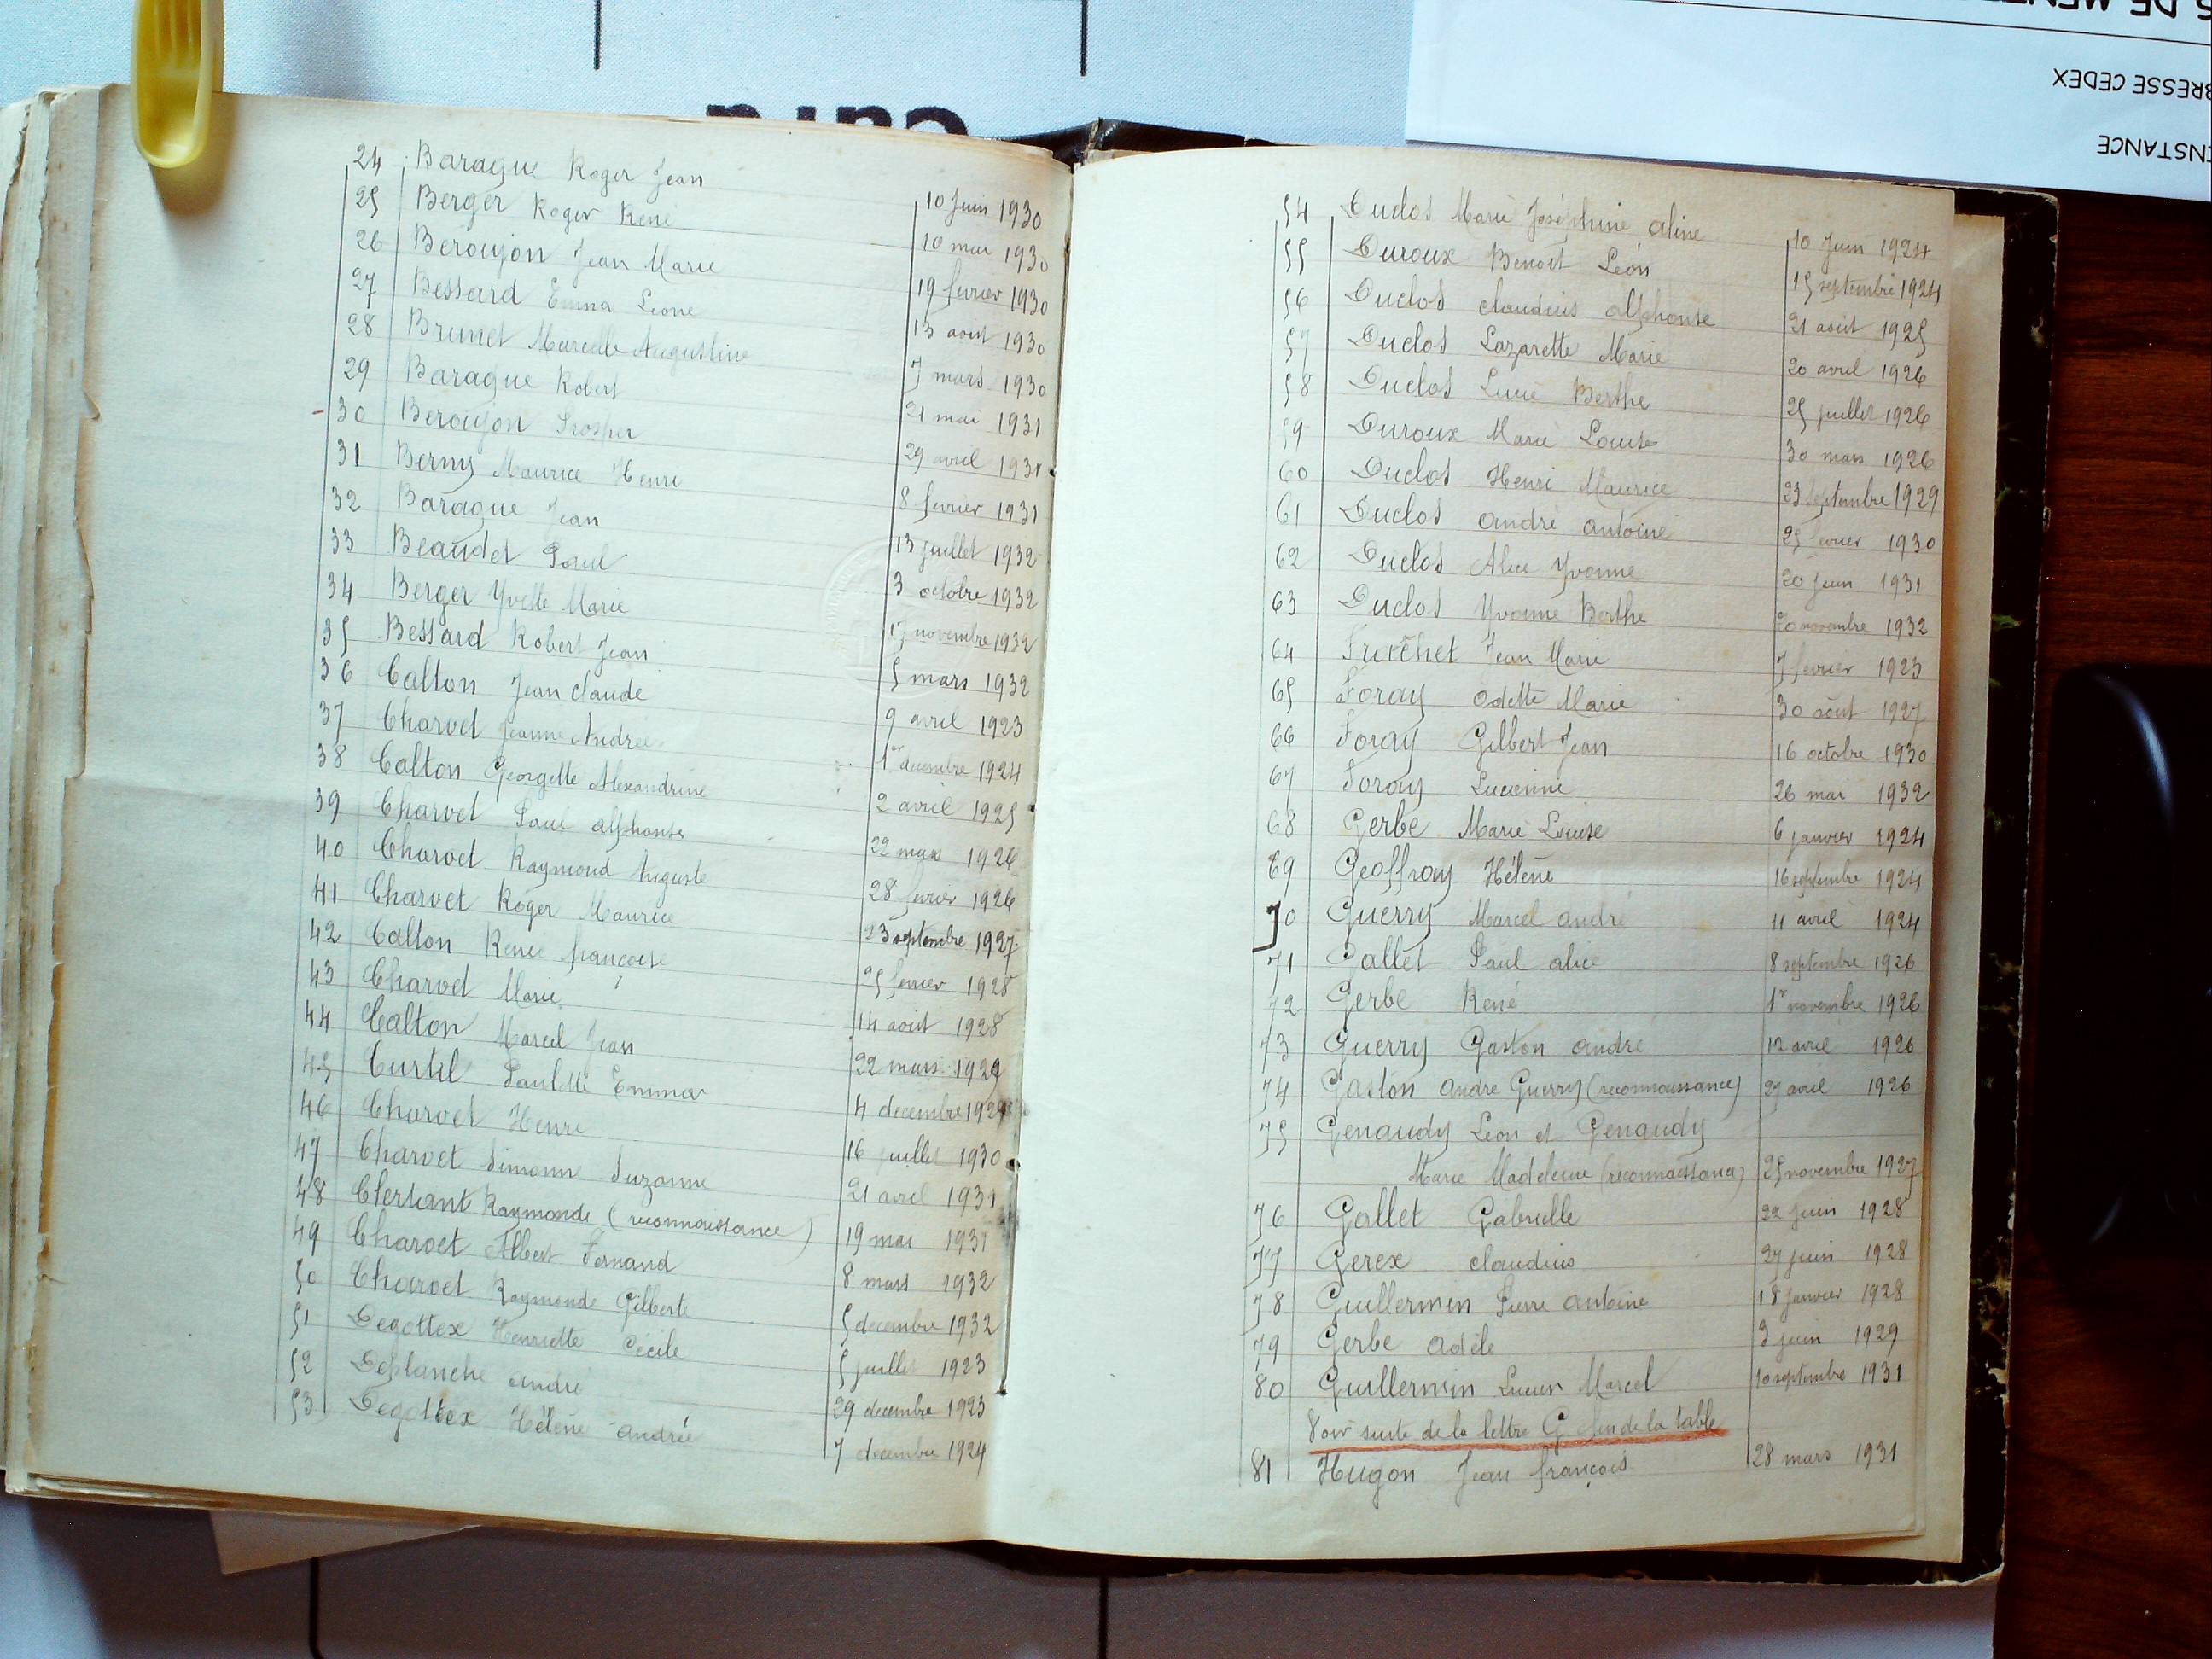 24 Baraque Roger Jean 10 Juin 1930
25 Berger Roger René 10 mai 1930
26 Beroujon Jean Marie 19 fevrier 1930
27 Bessard Emma Leone 13 aout 1930
28 Brunet Marcelle Augustine 7 mars 1930
29 Baraque Robert 21 mai 1931
30 Beroujon Prosper 29 avril 1931
31 Berny Maurice Henri 8 fevrier 1931
32 Baraque Jean 13 juillet 1932
33 Beaudet Paul 3 octobre 1932
34 Berger Yvette Marie 17 novembre 1932
35 Bessard Robert Jean 5 mars 1932
36 Calton Jean claude 9 avril 1923
37 Charvet Jeanne Andrée 1er decembre 1924
38 Calton Georgette Alexandrine 2 avril 1925
39 Charvet Paul alphonse 22 mars 1926
40 Charvet Raymond Auguste 28 fevrier 1926
41 Charvet Roger Maurice 23 septembre 1927
42 Calton Renée françoise 25 fevrier 1928
43 Charvet Marie 14 août 1928
44 Calton Marcel Jean 22 mars 1929
45 Curtil Paulette Emma 4 decembre 1929
46 Charvet Henri 16 juillet 1930
47 Charvet Simonne Suzanne 21 avril 1931
48 Raymonde (reconnaissance) 19 mai 1931
49 Charvet Albert Fernand 8 mars 1932
50 Charvet Raymonde Gilberte 5 decembre 1932
51 Degottex Henriette Cécile 5 juillet 1923
52 Deplanche André 29 decembre 1923
53 Degottex Hélène andrée 7 decembre 1924
54 Duclos Marie Joséphine aline 10 Juin 1924
55 Duroux Benoit Léon 15 septembre 1924
56 Duclos claudius alphonse 21 août 1925
57 Duclos Lazarette Marie 20 avril 1926
58 Duclos Lucie Berthe 25 juillet 1926
59 Duroux Marie Louise 30 mars 1926
60 Duclos Henri Maurice 23 septembre 1929
61 Duclos andré antoine 25 fevrier 1930
62 Duclos Alice Yvonne 20 juin 1931
63 Duclos Yvonne Berthe 20 novembre 1932
64 Jean Marie 7 fevrier 1923
65 Foray Odette Marie 30 août 1927
66 Foray Gilbert Jean 16 octobre 1930
67 Foray Lucienne 26 mai 1932
68 Gerbe Marie Louise 6 janvier 1924
69 Geoffray Hélène 16 septembre 1924
70 Guerry Marcel andré 11 avril 1924
71 Gallet Paul alice 8 septembre 1926
72 Gerbe René 1er novembre 1926
73 Guerry Gaston andre 12 avril 1926
74 Gaston andre Guerry (reconnaissance) 27 avril 1926
75 Genaudy Leon et Genaudy
Marie Madeleine (reconnaissance) 25 novembre 1927
76 Gallet Gabrielle 22 juin 1928
77 Gerex claudius 27 juin 1928
78 Guillermin Pierre antoine 18 janvier 1928
79 Gerbe adèle 3 juin 1929
80 Guillermin Lucien Marcel 10 septembre 1931
Voir suite de la lettre G fin de la table
81 Hugon Jean françois 28 mars 1931
BRESSE CEDEX